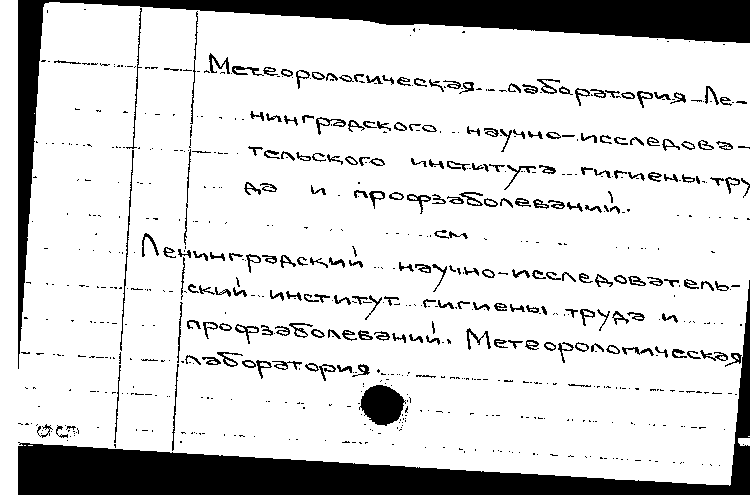 Метеорологическая лаборатория Ле-
нинградского научно-исследова-
тельского института гигиены тру
да и профзаболеваний.
см
Ленинградский научно-исследователь-
ский институт гигиены труда и
профзаболеваний. Метеорологическая
лаборатория.